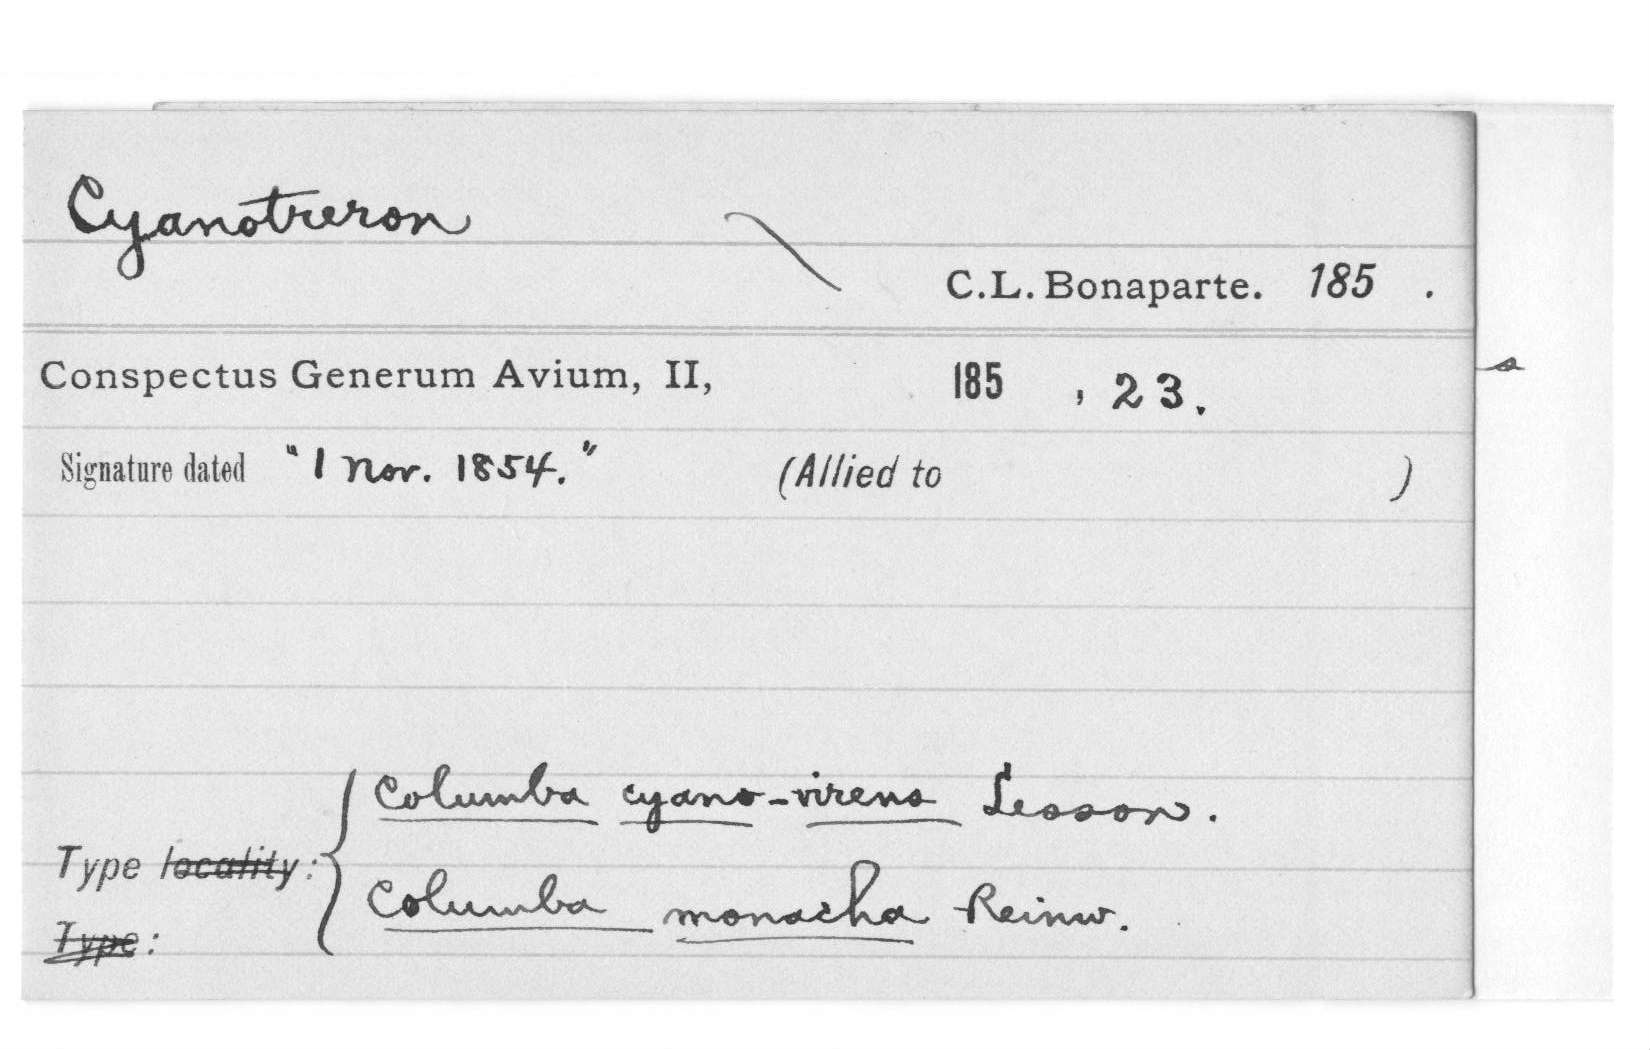 Cyanotreron
C.L. Bonaparte. 185 .
Conspectus Generum Avium, II, 185 , 23.
s
Signature dated "1 Nov. 1854." (Allied to )
Columba cyano-virens Lesson.
Type locality:
Columba monacha Reinw.
Type: